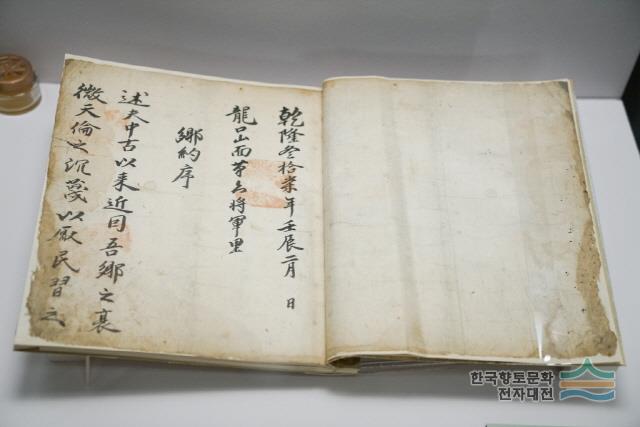 乾隆叁拾柒年壬辰二月 日
龍山面第六將軍里
鄉約序
述夫中古以来近日吾鄉之衰
微天倫之沉蔑以厥民習之
한국향토문화
전자대전